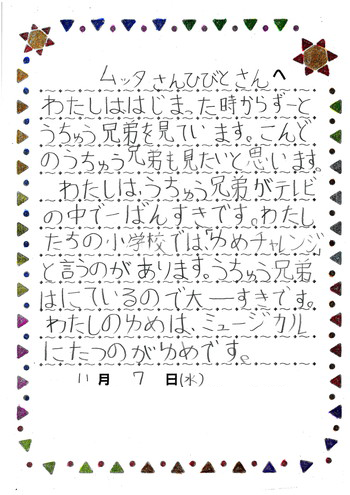 ムッタさんひびとさんへ
わたしははじまった時からずーと
うちゅう兄弟を見ています。こんど
のうちゅう兄弟も見たいと思います。
わたしは、うちゅう兄弟がテレビ
の中で一ばんすきです。わたし
たちの小学校では「ゆめチャレンジ」
と言うのがあります。うちゅう兄弟
はにているので大一すきです。
わたしのゆめは、ミュージカル
にたつのがゆめです。
11月 7日(水)